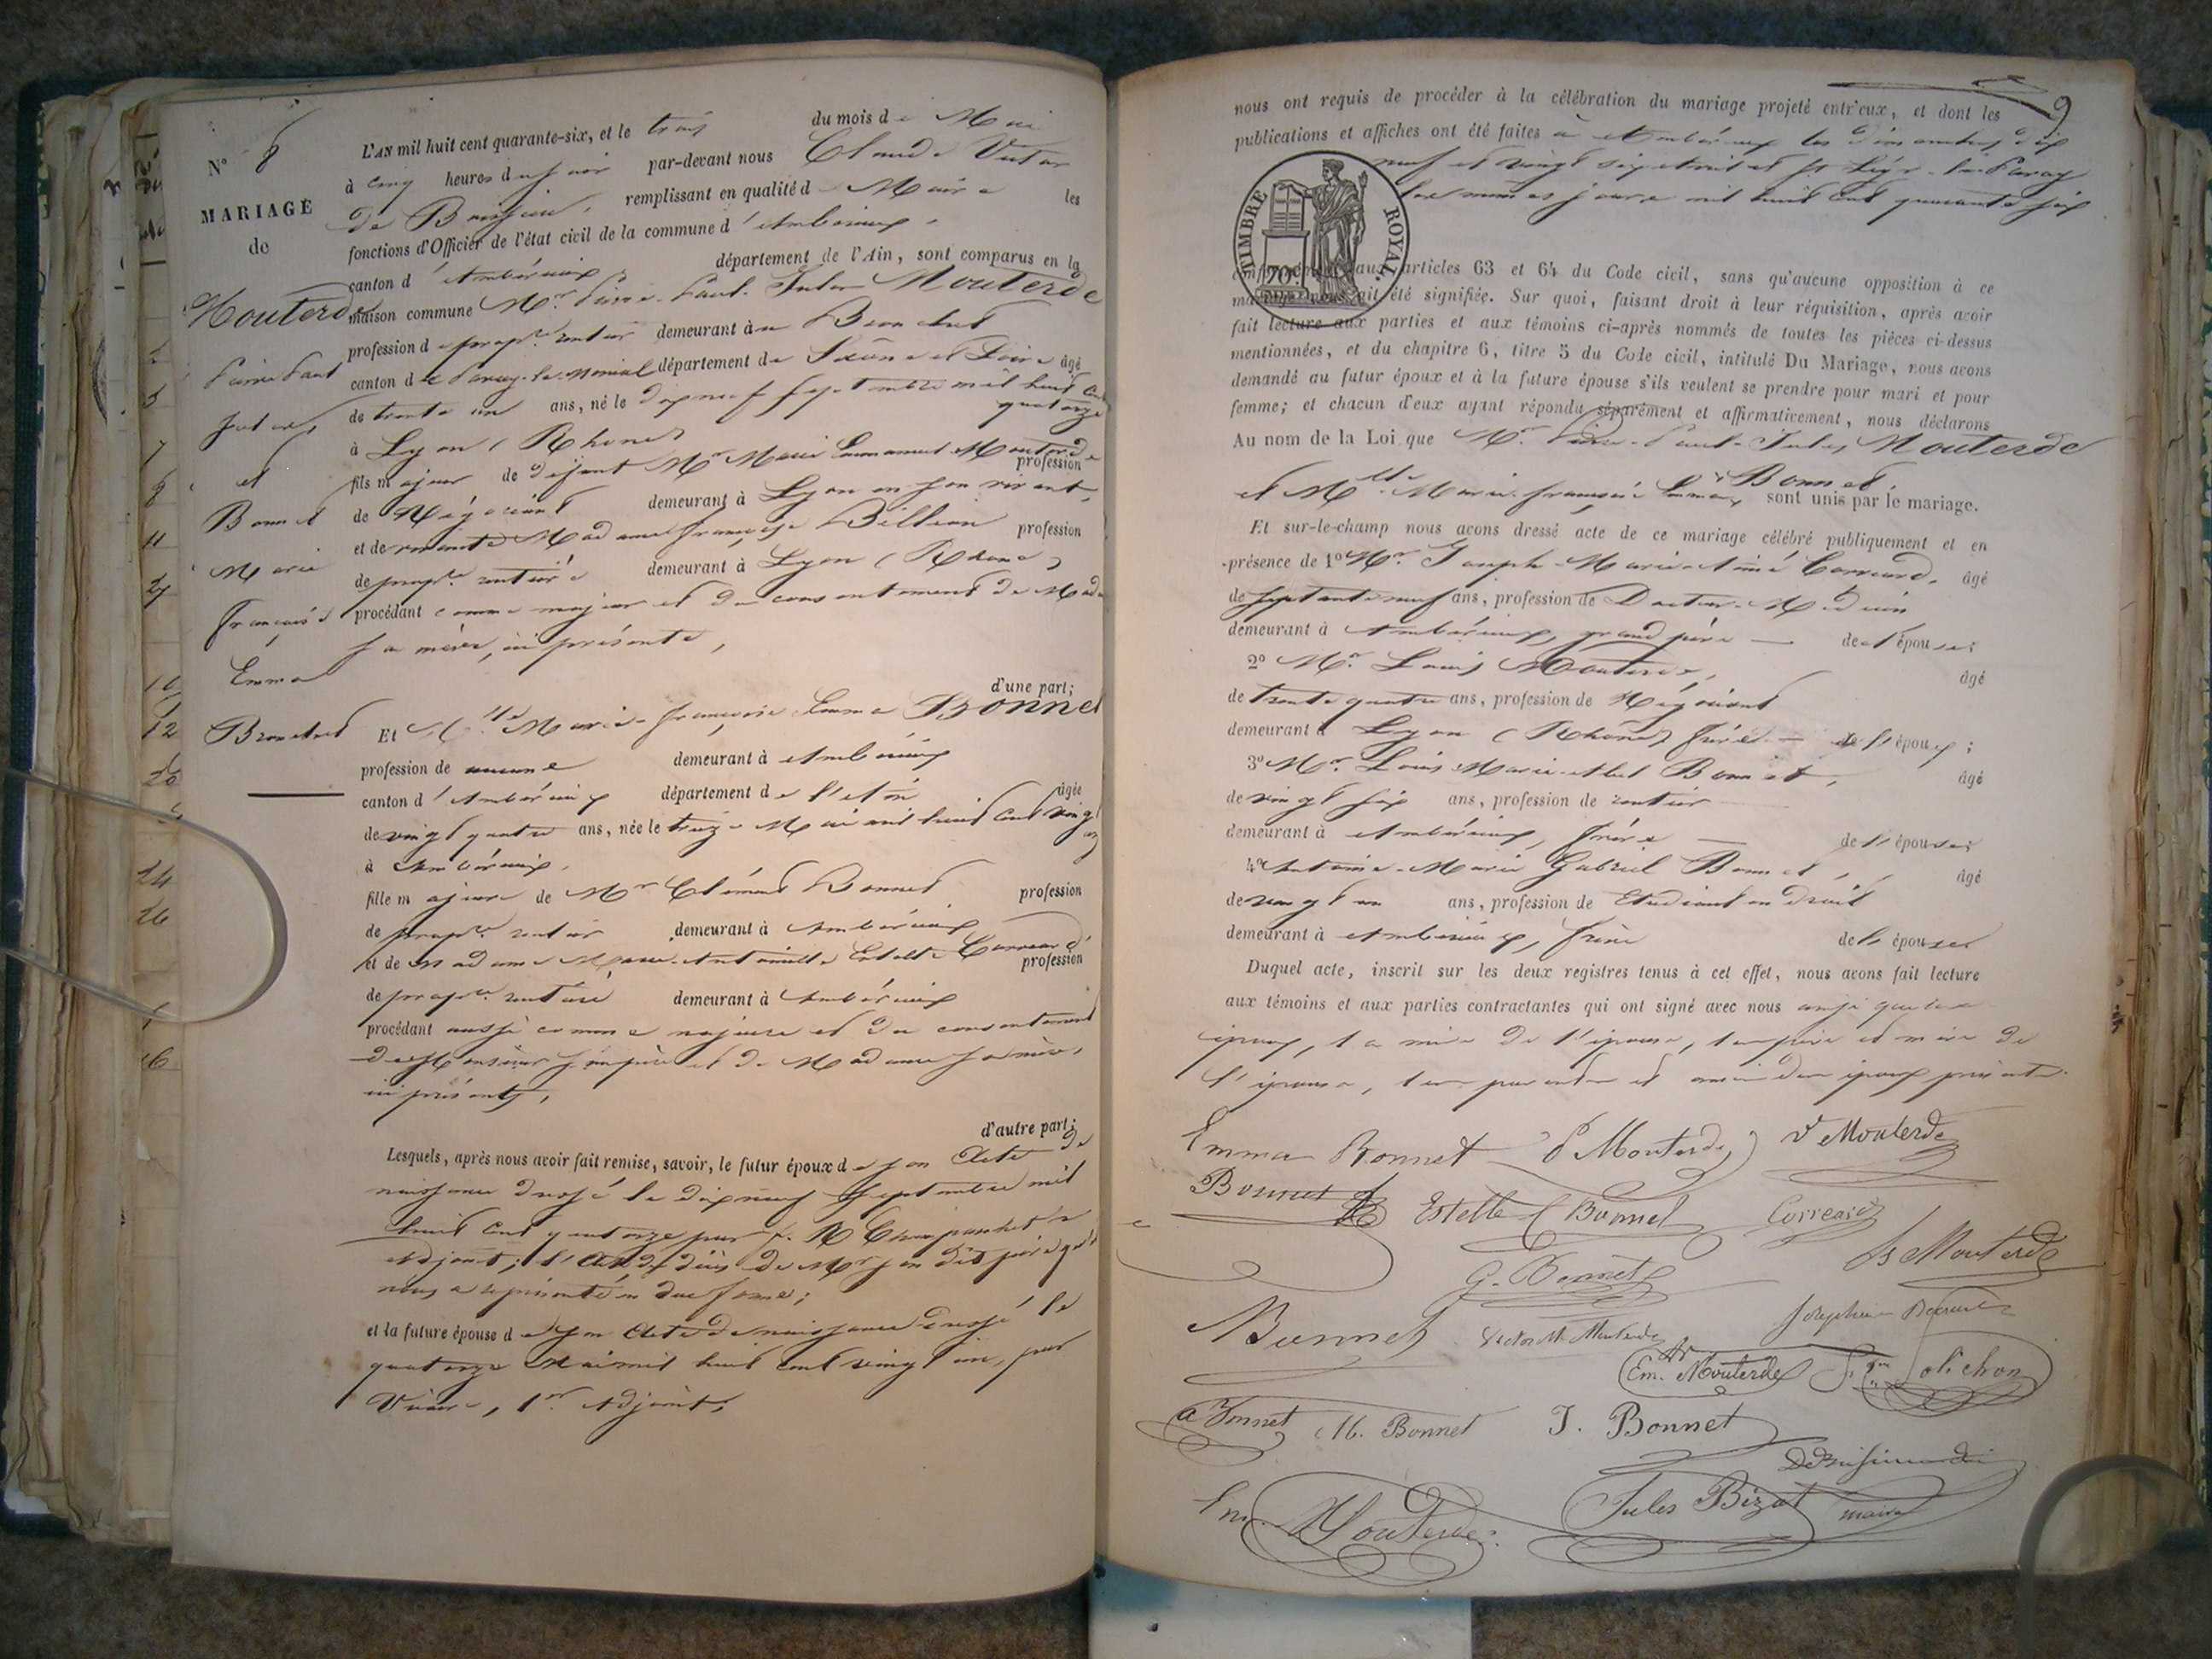 N° 8
MARIAGE
de
Mouterde
Pierre Paul
Jules
et
Bonnet
Marie
Françoise
Emma
L'AN mil huit cent quarante-six, et le trois du mois de Mai
à cinq heures du soir par-devant nous Claude Victor
de Boissieu, remplissant en qualité de Maire les
fonctions d'Officier de l'état civil de la commune d'Ambérieux,
canton d'Ambérieux, département de l'Ain, sont comparus en la
maison commune Mr. Pierre-Paul-Jules Mouterde
profession de propre. rentier demeurant à
canton de Paray-le-Monial département de Saône et Loire âgé
de trente un ans, né le dix neuf septembre mil huit cent
quatorze
à Lyon (Rhône)
fils majeur de défunt Mr Marie Emmanuel Mouterde
profession
de Négociant demeurant à Lyon en son vivant,
et de vivante Madame françoise Billion profession
de propre. rentière demeurant à Lyon (Rhône)
procédant comme majeur et du consentement de Made
sa mère, ici présente,
d'une part;
Et Mlle Marie-françoise Emma Bonnet
profession de aucune demeurant à Ambérieux
canton d'Ambérieux département de l'Ain âgée
de vingt quatre ans, née le treize Mai mil huit cent vingt
un
à Ambérieux,
fille majeure de Mr Clément Bonnet profession
de propre. rentier demeurant à Ambérieux
et de Madame Marie-Antoinette Estelle Correard
profession
de propre. rentière demeurant à Ambérieux
procédant aussi comme majeure et du consentement
de Monsieur son père et de Madame sa mère,
ici présents,
d'autre part;
Lesquels, après nous avoir fait remise, savoir, le futur époux de son Acte de
naissance dressé le dix neuf septembre mil
huit cent quatorze par
Adjoint; l'Acte de décès de Mr son dit père qu'il
nous a représenté en due forme;
et la future épouse de son Acte de naissance dressé le
quatorze Mai mil huit cent vingt un, par
1er Adjoint,
9
nous ont requis de procéder à la célébration du mariage projeté entr'eux, et dont les
publications et affiches ont été faites à Ambérieux les dimanches dix
neuf et vingt six Avril et St Léger-lès-Paray
les mêmes jours mil huit cent quarante six
TIMBRE ROYAL.
70c
conformément aux articles 63 et 64 du Code civil, sans qu'aucune opposition à ce
mariage nous ait été signifiée. Sur quoi, faisant droit à leur réquisition, après avoir
fait lecture aux parties et aux témoins ci-après nommés de toutes les pièces ci-dessus
mentionnées, et du chapitre 6, titre 5 du Code civil, intitulé Du Mariage, nous avons
demandé au futur époux et à la future épouse s'ils veulent se prendre pour mari et pour
femme; et chacun d'eux ayant répondu séparément et affirmativement, nous déclarons
Au nom de la Loi que Mr. Pierre-Paul-Jules Mouterde
et Mlle Marie-françoise Emma Bonnet, sont unis par le mariage.
Et sur-le-champ nous avons dressé acte de ce mariage célébré publiquement et en
présence de 1° Mr. Joseph-Marie-Aimé Correard, âgé
de septante neuf ans, profession de Docteur-Médecin
demeurant à Ambérieux, grand père de l'épouse;
2° Mr. Louis Mouterde, âgé
de trente quatre ans, profession de Négociant
demeurant à Lyon (Rhône) frère de l'époux;
3° Mr. Louis Marie Abel Bonnet, âgé
de vingt six ans, profession de rentier
demeurant à Ambérieux, frère de l'épouse;
4° Antoine-Marie Gabriel Bonnet, âgé
de vingt un ans, profession de Etudiant en droit
demeurant à Ambérieux, frère de l'épouse
Duquel acte, inscrit sur les deux registres tenus à cet effet, nous avons fait lecture
aux témoins et aux parties contractantes qui ont signé avec nous ainsi que les
époux, la mère de l'époux, les père et mère de
l'épouse, les parents et amis des époux présents.
Emma Bonnet P Mouterde Ve Mouterde
Bonnet Estelle C Bonnet Correard
G. Bonnet Ls Mouterde
Bonnet Victor M. Mouterde Joséphine
Em. Mouterde
M. Bonnet J. Bonnet
De Boissieu
maire
Em. Mouterde Jules Bizot